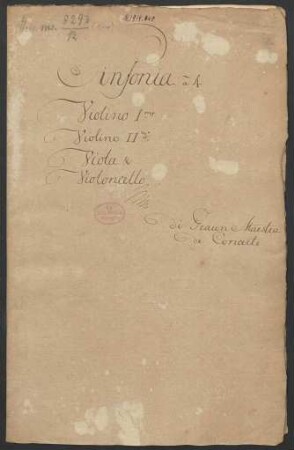 8293
Sinfonia à 4.
Violino I.mo
Violino II.do
Viola &
Violoncello.
di Graun Maestro
di Concerto